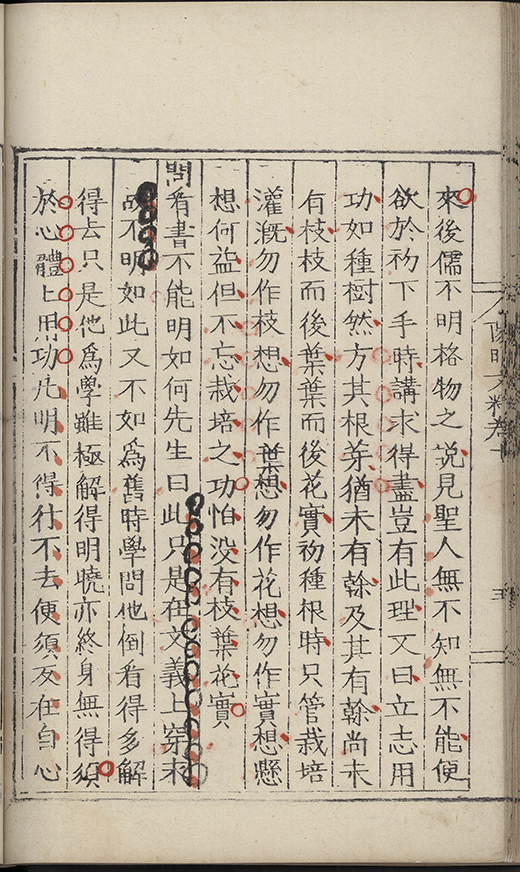 陽明文粹卷
來後儒不明格物之說見聖人無不知無不能便
欲於初下手時講求得盡豈有此理又曰立志用
功如種樹然方其根芽猶未有榦及其有榦尚未
有枝枝而後葉葉而後花實初種根時只管栽培
灌漑勿作枝想勿作葉想勿作花想勿作實想懸
想何益但不忘栽培之功怕没有枝葉花實
問看書不能明如何先生曰此只是在文義上穿求
故不明如此又不如爲舊時學問他倒看得多解
得去只是他爲學雖極解得明曉亦終身無得須
於心體上用功凡明不得行不去便須反在自心